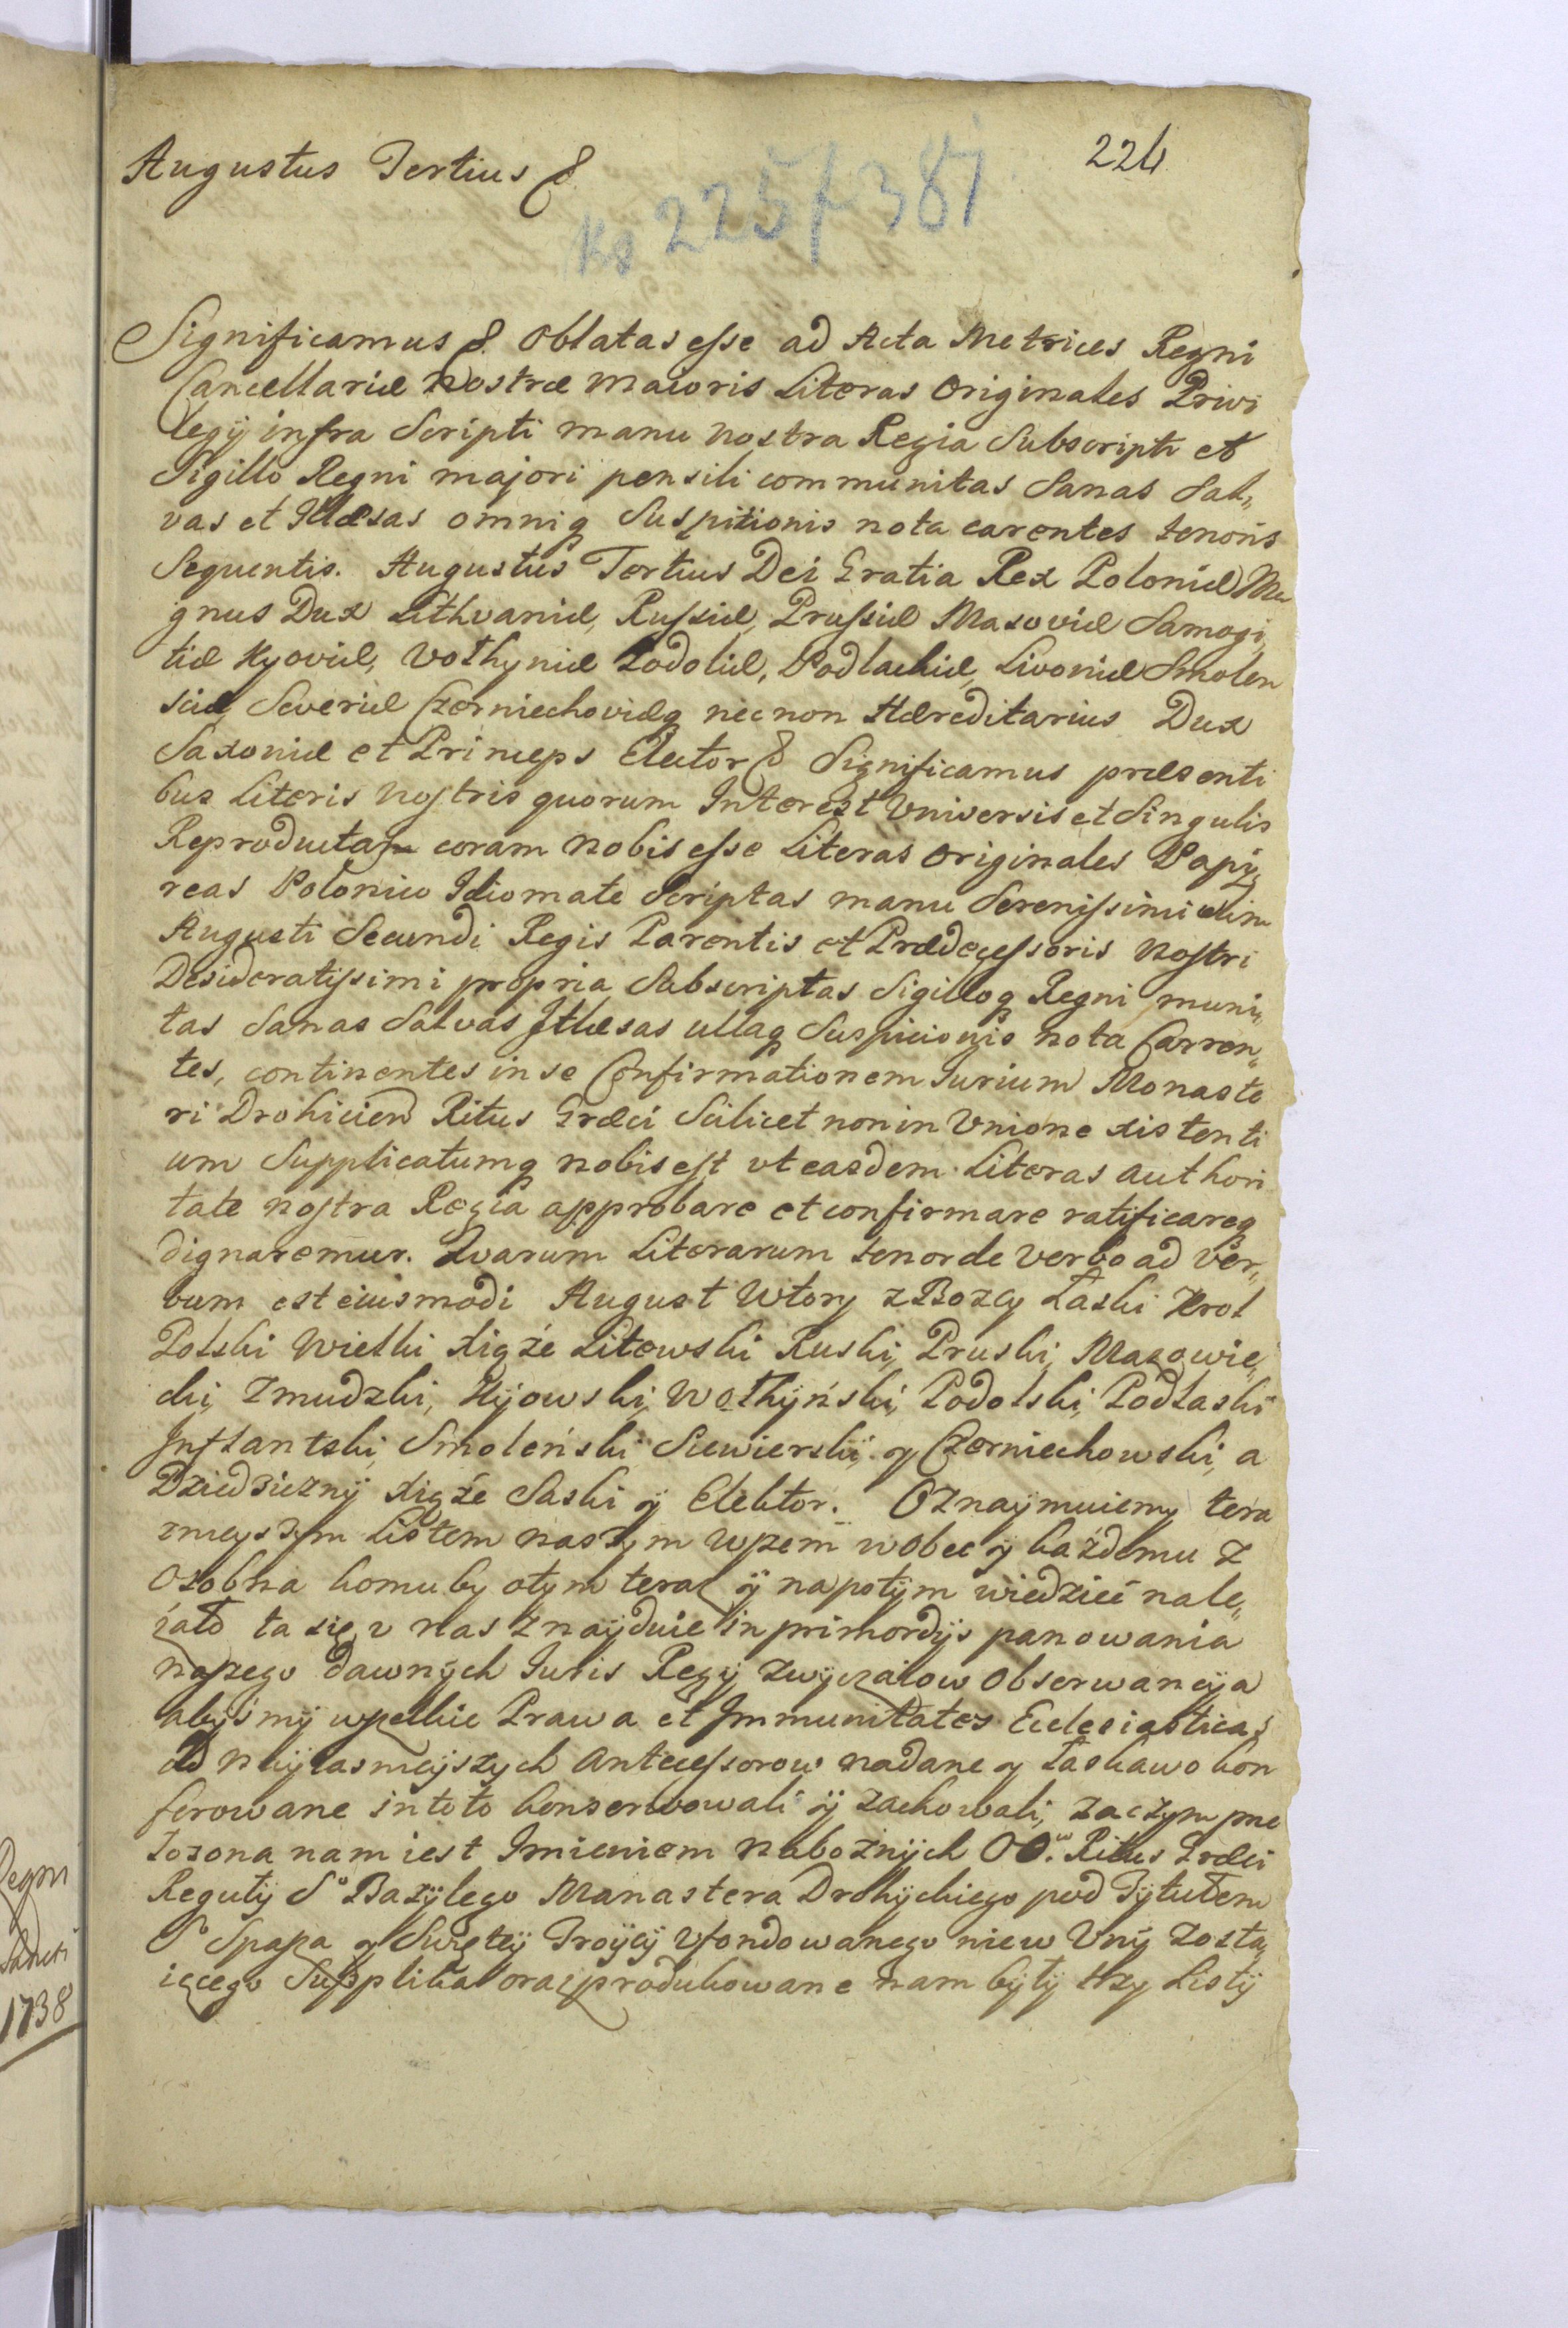 224
Augustus Tertius &
Ks 225 f 381
Significamus &. Oblatas esse ad Acta Metrices Regni
Cancellariæ Nostræ Maioris Literas Originales Privi
legÿ infra Scripti manu nostra Regia Subscripti et
Sigillo Regni majori pensili communitas Sanas Sal„
vas et Illæsas omniq Suspitionis nota carentes tenoris
Sequentis. Augustus Tertius Dei Gratia Rex Poloniæ Ma
gnus Dux Lithvaniæ, Russiæ, Prussiæ Masoviæ Samogi„
tiæ Kyoviæ, Volhyniæ Podoliæ, Podlachiæ, Livoniæ Smolen
sciæ, Severiæ Czerniechoviæq necnon Hæreditarius Dux
Saxoniæ et Princeps Elector & Significamus præsenti
bus Literis Nostris quorum Interest Universis et Singulis
Reproductas coram Nobis esse Literas Originales Papi„
reas Polonico Idiomate Scriptas manu Serenissimi olim
Augusti Secundi Regis Parentis et Prædecessoris Nostri
Desideratissimi propria Subscriptas Sigilloq Regni muni„
tas Sanas Salvas Illæsas ullaq Suspicionis nota Carren„
tes, continentes in se Confirmationem Iurium Monaste
ri Drohicien Ritus Græci Scilicet non in Unione xistenti
um Supplicatumq nobis est ut easdem Literas authori
tate nostra Regia approbare et confirmare ratificareq
dignaremur. Qvarum Literarum tenor de verbo ad ver„
bum est eiusmodi August Wtory z Bozey Łaski Krol
Polski Wielki Xiąże Litewski Ruski, Pruski, Mazowie„
cki, Zmudzki, Kijowski, Wołhÿński, Podolski, Podlaski
Inflantski, Smoleński Siewierskÿ y Czerniechowski, a
Dziedzicznÿ Xiąże Saski ÿ Elektor. Oznaÿmuiemy tera
znieyszym Listem naszym wszem wobec y każdemu z
Osobna komu by otym teraz ÿ napotÿm wiedzieć nale„
żało ta się u nas znaÿduie in primordÿs panowania
naszego dawnÿch Iuris Regÿ zwÿczaiow Obserwancÿa
abÿsmÿ wszelkie Prawa et Immunitates Ecclesiasticas
od Naÿiasnieÿszych Antecessorow nadane y Łaskawo kon
ferowane in toto konserwowali ÿ zachowali, zaczym prze
łozona nam iest Imieniem Naboznÿch OO. Ritus Græci
Regułÿ So Bazÿlego Manastera Drohÿckiego pod Tÿtułem
So Spasa y Swiętey Troÿcÿ Ufondowanego nie w Unÿ zosta„
iącego Supplika oraz produkowane nam bÿłÿ trzy Listÿ
Regni
1738